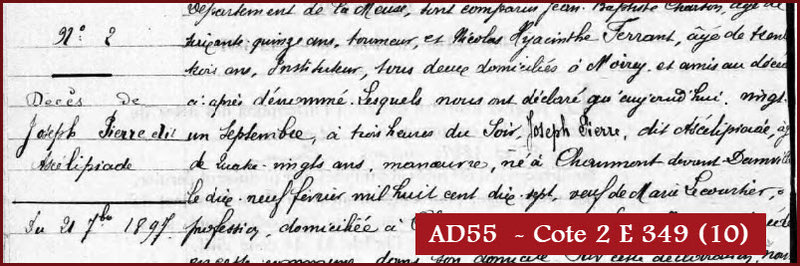 Département de la Meuse, sont comparus Jean Baptiste Charton, âgé de
N° 2
soixante quinze ans, tourneur, et Nicolas Hyacinthe Ferrant, âgé de trente
trois ans, Instituteur, tous deux domiciliés à Moirey et amis au décédé
Décès de
Joseph Pierre dit
Ascélipiade
ci-après dénommé. Lesquels nous ont déclaré qu'aujourd'hui, vingt-
un Septembre, à trois heures du Soir, Joseph Pierre, dit Ascélipiade, â
de quatre-vingts ans, manœuvre, né à Chaumont devant Damvill
le dix-neuf février mil huit cent dix-sept, veuf de Marie Lecourtier,
Du 21 7bre 1897.
profession, domiciliée à
AD55 - Cote 2 E 349 (10)
dans son domicile